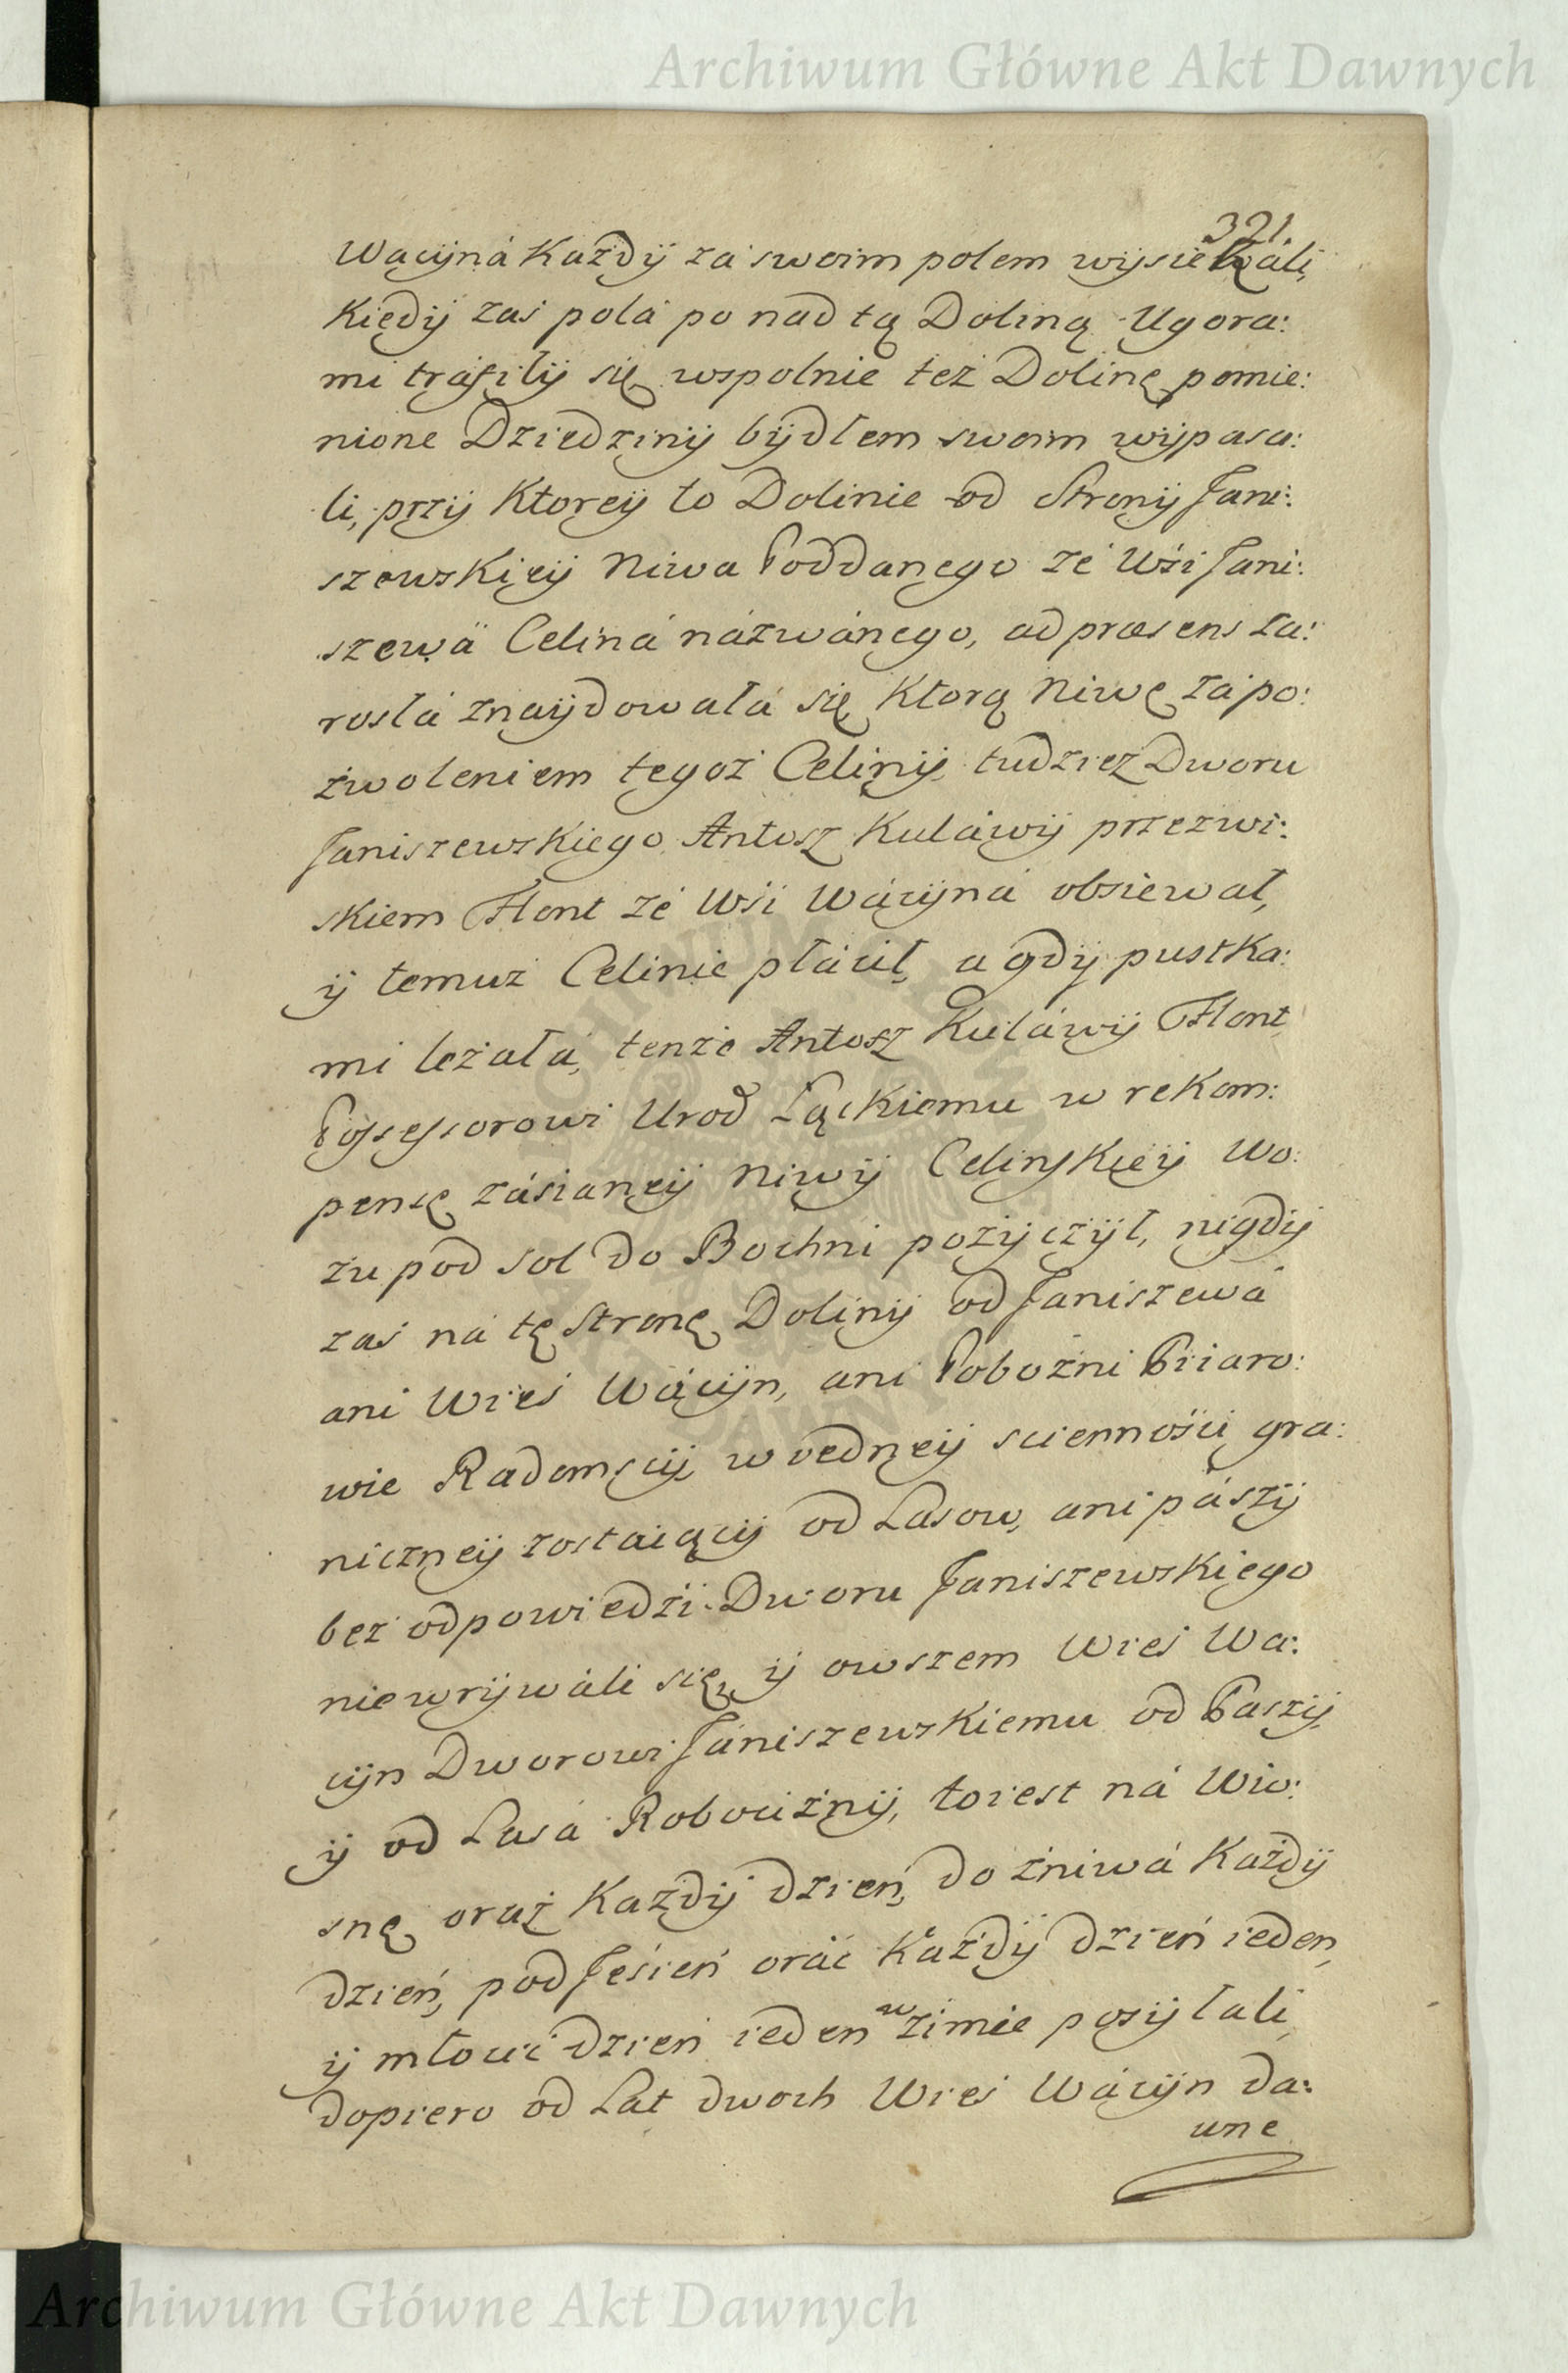 Archiwum Główne Akt Dawnych
321.
Wacyná Każdy za swoim polem wysiekáli,
Kiedy zas polá po nad tą Doliną Ugora:
mi tráfiły się wspolnie też Dolinę pomie:
nione Dziedziny bydłem swoim wypasa:
li, przy Ktorey to Dolinie od Strony Jani:
szewskiey Niwa Poddanego ze Wsi Jani:
szewá Celiná názwánego, ad præsens za:
rosłá znaydowałá się, Ktorą Niwę zá po:
zwoleniem tegoż Celiny, tudziez Dworu
Janiszewskiego Antosz Kuláwy przezwi:
skiem Flont zé Wsi Wácyná obsiewał,
y temuż Celinie płácił, a gdy pustka:
mi leżałá, tenże Antosz Kuláwy Flont
Possessorowi Urod Łąckiemu w rekom:
pensę zásianey Niwy Celinskiey Wo:
zu pod sol do Bochni pożyczył, nigdy
zaś ná tę Stronę Doliny od Janiszewá
ani Wieś Wácyn, ani Pobożni Piiaro:
wie Radomscy w iedney scienności gra:
niczney zostaiący od Lasow, ani pászy
bez odpowiedzi Dworu Janiszewskiego
niewrywáli się, y owszem Wieś Wa:
cyn Dworowi Jániszewskiemu od Paszy,
y od Lasá Robocizny, to iest ná Wio:
snę oraż Każdy dzień, do żniwá Każdy
dzień, pod Jesień oráć Każdy dzień ieden,
y młocić dzień ieden w zimie posyłali,
dopiero od Lat dwoch Wieś Wácyn da:
wne
Archiwum Główne Akt Dawnych